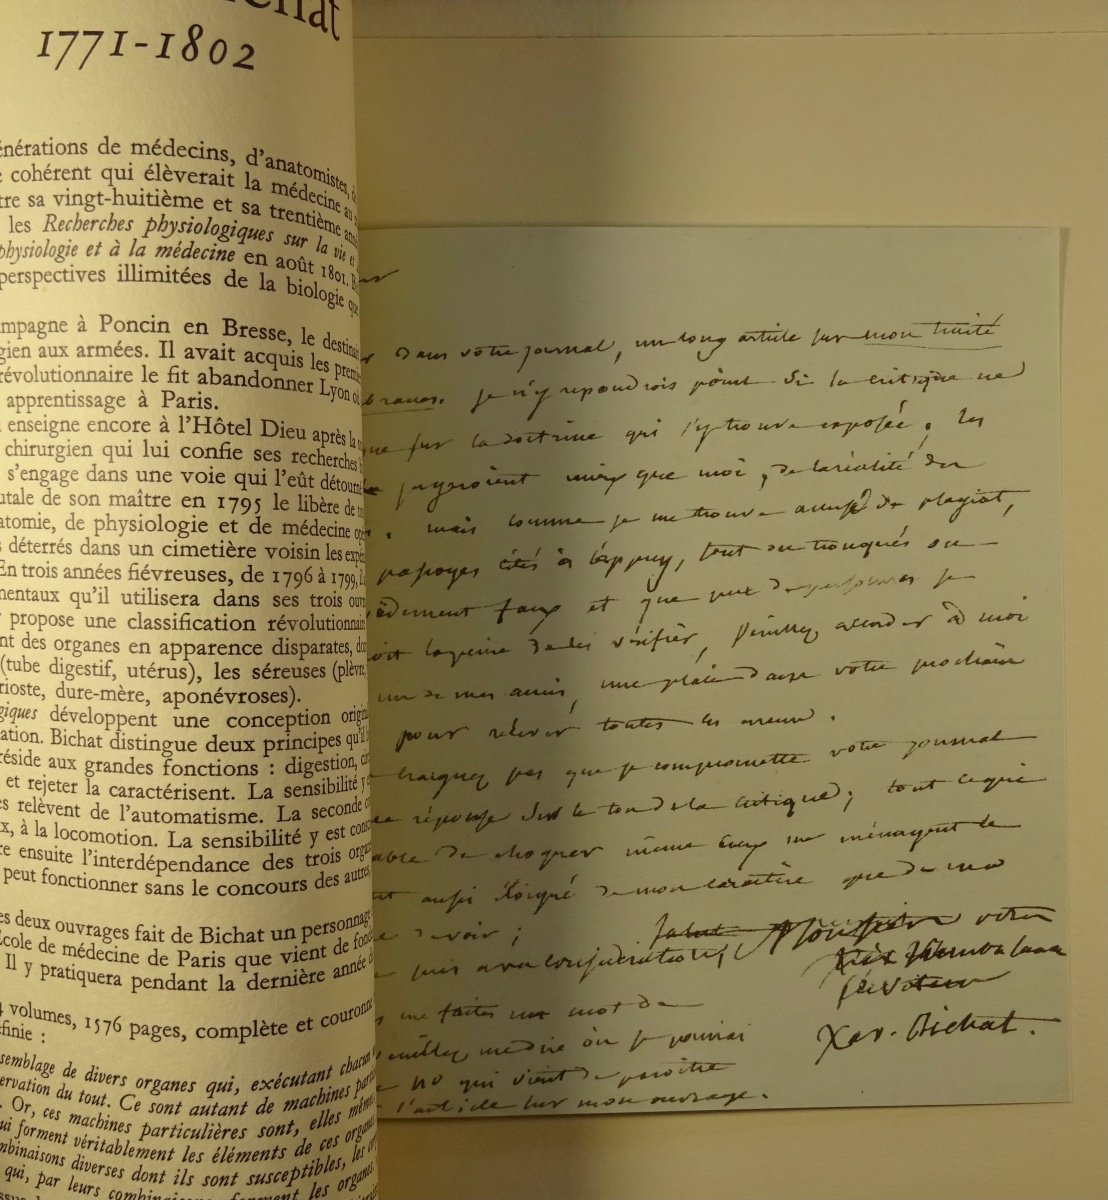 1771-1802
énérations de médecins, d'anatomistes,
cohérent qui élèverait la médecine au
tre sa vingt-huitième et sa trentième
les Recherches physiologiques sur la vie et
physiologie et à la médecine en août 1801.
perspectives illimitées de la biologie que
mpagne à Poncin en Bresse, le destinait
gien aux armées. Il avait acquis les premi
révolutionnaire le fit abandonner Lyon où
apprentissage à Paris.
enseigne encore à l'Hôtel Dieu après la
chirurgien qui lui confie ses recherches
s'engage dans une voie qui l'eût détourné
utale de son maître en 1795 le libère de
atomie, de physiologie et de médecine opé
s déterrés dans un cimetière voisin les expér
En trois années fiévreuses, de 1796 à 1799,
mentaux qu'il utilisera dans ses trois ouv
r propose une classification révolutionnaire
nt des organes en apparence disparates, do
(tube digestif, utérus), les séreuses (plèvre,
rioste, dure-mère, aponévroses).
giques développent une conception origin
ation. Bichat distingue deux principes qu'il
réside aux grandes fonctions : digestion, cir
et rejeter la caractérisent. La sensibilité y
es relèvent de l'automatisme. La seconde
x, à la locomotion. La sensibilité y est consc
re ensuite l'interdépendance des trois orga
peut fonctionner sans le concours des autres
es deux ouvrages fait de Bichat un personnage
École de médecine de Paris que vient de fon
Il y pratiquera pendant la dernière année
4 volumes, 1576 pages, complète et couronne
éfinie :
semblage de divers organes qui, exécutant chacun
ervation du tout. Ce sont autant de machines parti
. Or, ces machines particulières sont, elles mêmes
ui forment véritablement les éléments de ces organes
mbinaisons diverses dont ils sont susceptibles, les
qui, par leurs combinaisons, forment les organes.
dans votre journal, un long article sur mon traité
branes. je n'y repondrois point si la critique ne
que sur la doctrine qui s'y trouve exposée. les
jugeroient mieux que moi, de la réalité des
mais comme je me trouve accusé de plagiat,
passages cités à l'appuy, sont ou tronqués ou
faux et que peu de personnes se
la peine de les vérifier, veuillez accorder à moi
un de mes amis, une place dans votre prochain
pour relever toutes les erreurs.
craignez pas que je compromette votre journal
réponse sur le ton de la critique; tout ce qui
able de choquer même ceux qui ménagent le
aussi éloigné de mon caractère que de mon
devoir;
salut, Monsieur votre
suis avec considération,
dévoué
Xav. Bichat.
me faites un mot de
veuillez me dire où je pourrai
no qui vient de paroitre
l'article sur mon ouvrage.